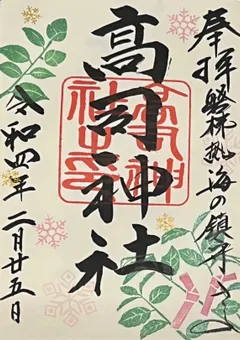 奉拝 磐梯熱海の鎮守さま
高司神社
令和四年 二月廿五日